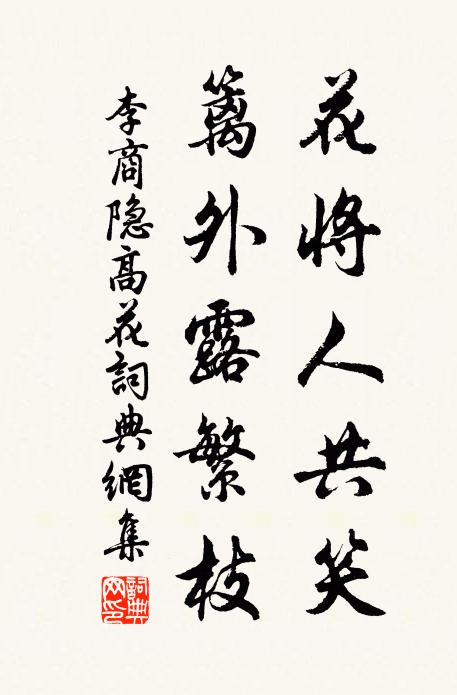 花將人共笑
籬外露繁枝
李商隐高花詞典網集
詞典网印